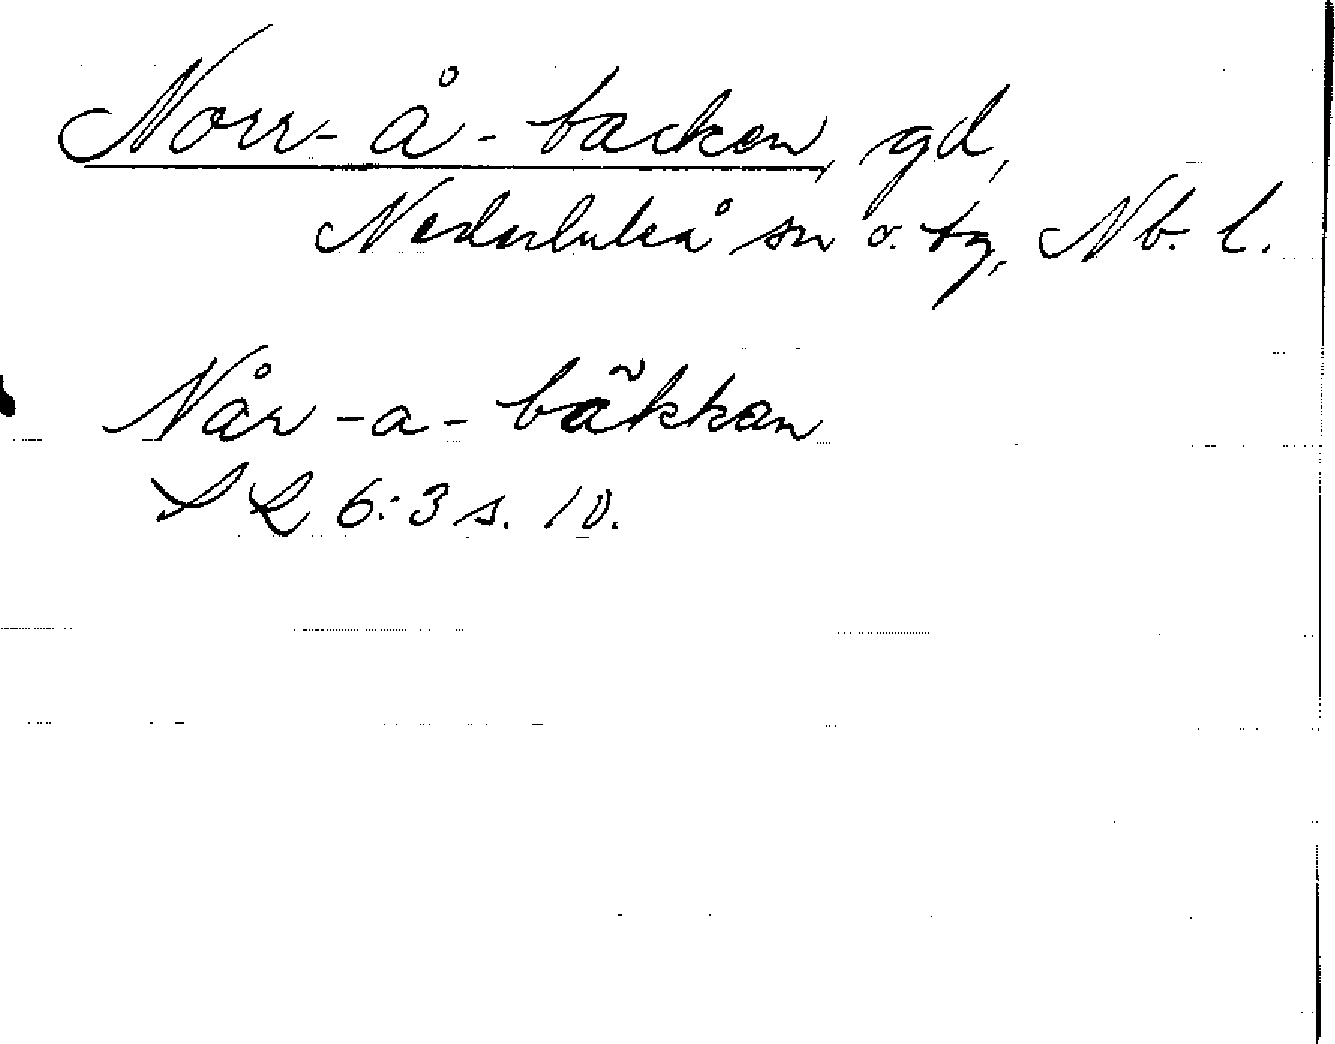 Norr-å-backen, gd,
Nederluleå sn o. tg, Nb. l.
Når-a-bãkkan
S L 6:3 s. 10.